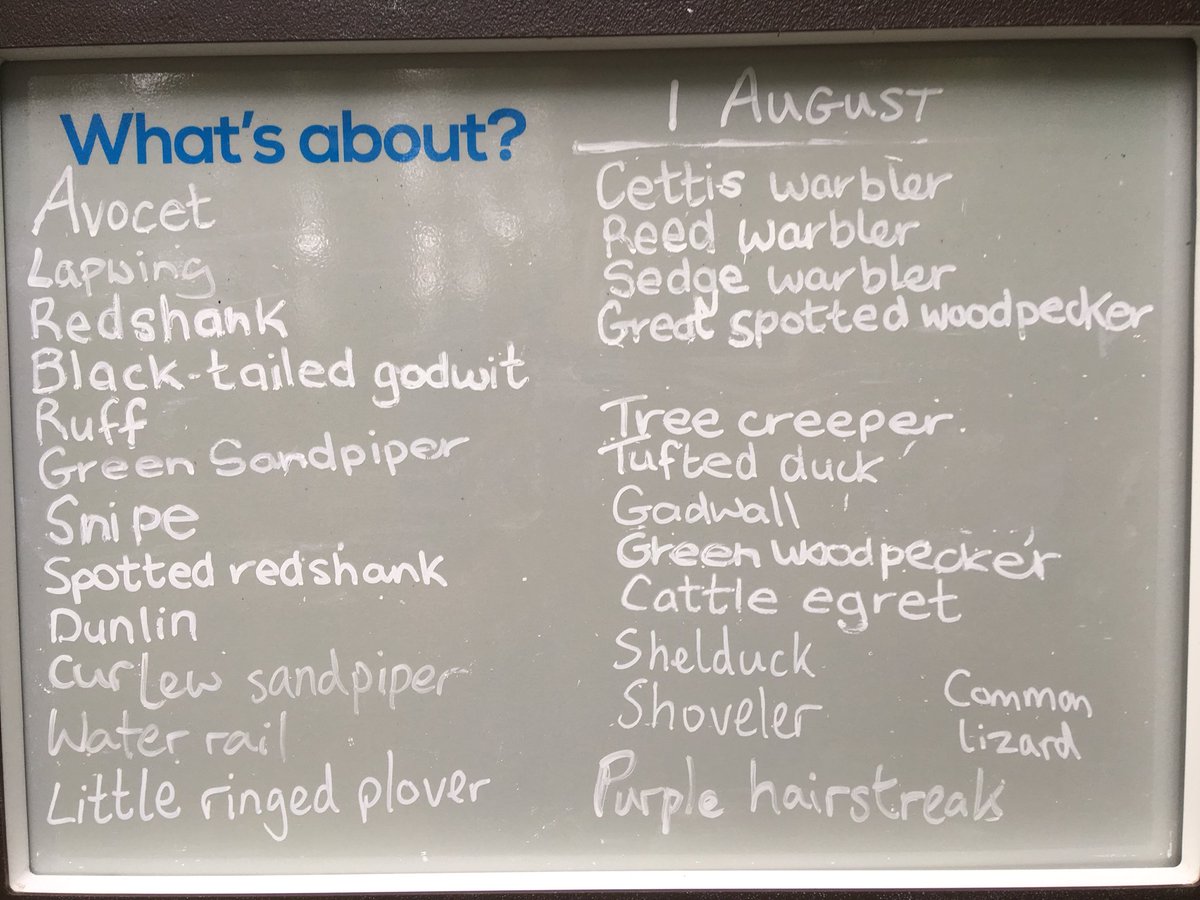 What's about?
Avocet
Lapwing
Redshank
Black-tailed godwit
Ruff
Green Sandpiper
Snipe
Spotted redshank
Dunlin
Curlew sandpiper
Water rail
Little ringed plover
1 AUGUST
Cettis warbler
Reed warbler
Sedge warbler
Great spotted woodpecker
Tree creeper
Tufted duck
Gadwall
Green woodpecker
Cattle egret
Shelduck
Shoveler
Common
lizard
Purple hairstreak